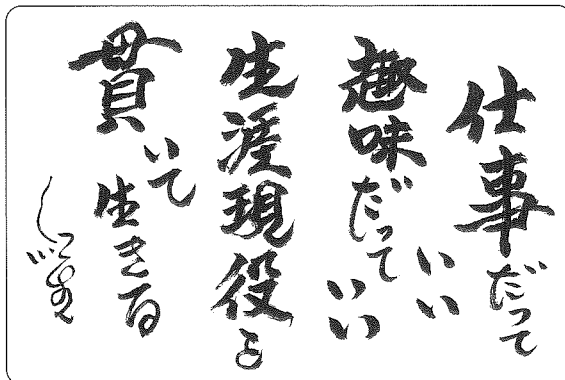 仕事だっていい
趣味だっていい
生涯現役を
貫いて生きる